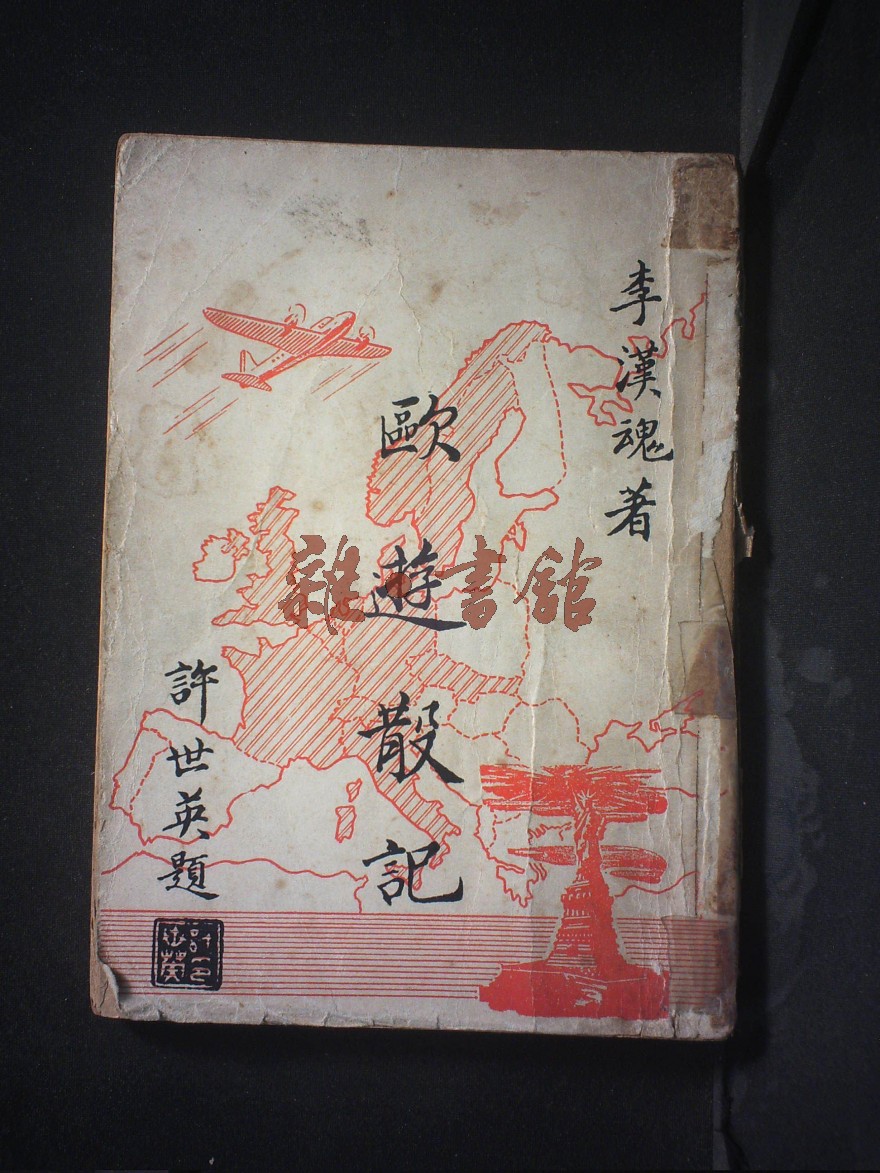 李漢魂著
歐遊散記
許世英題
雜書館